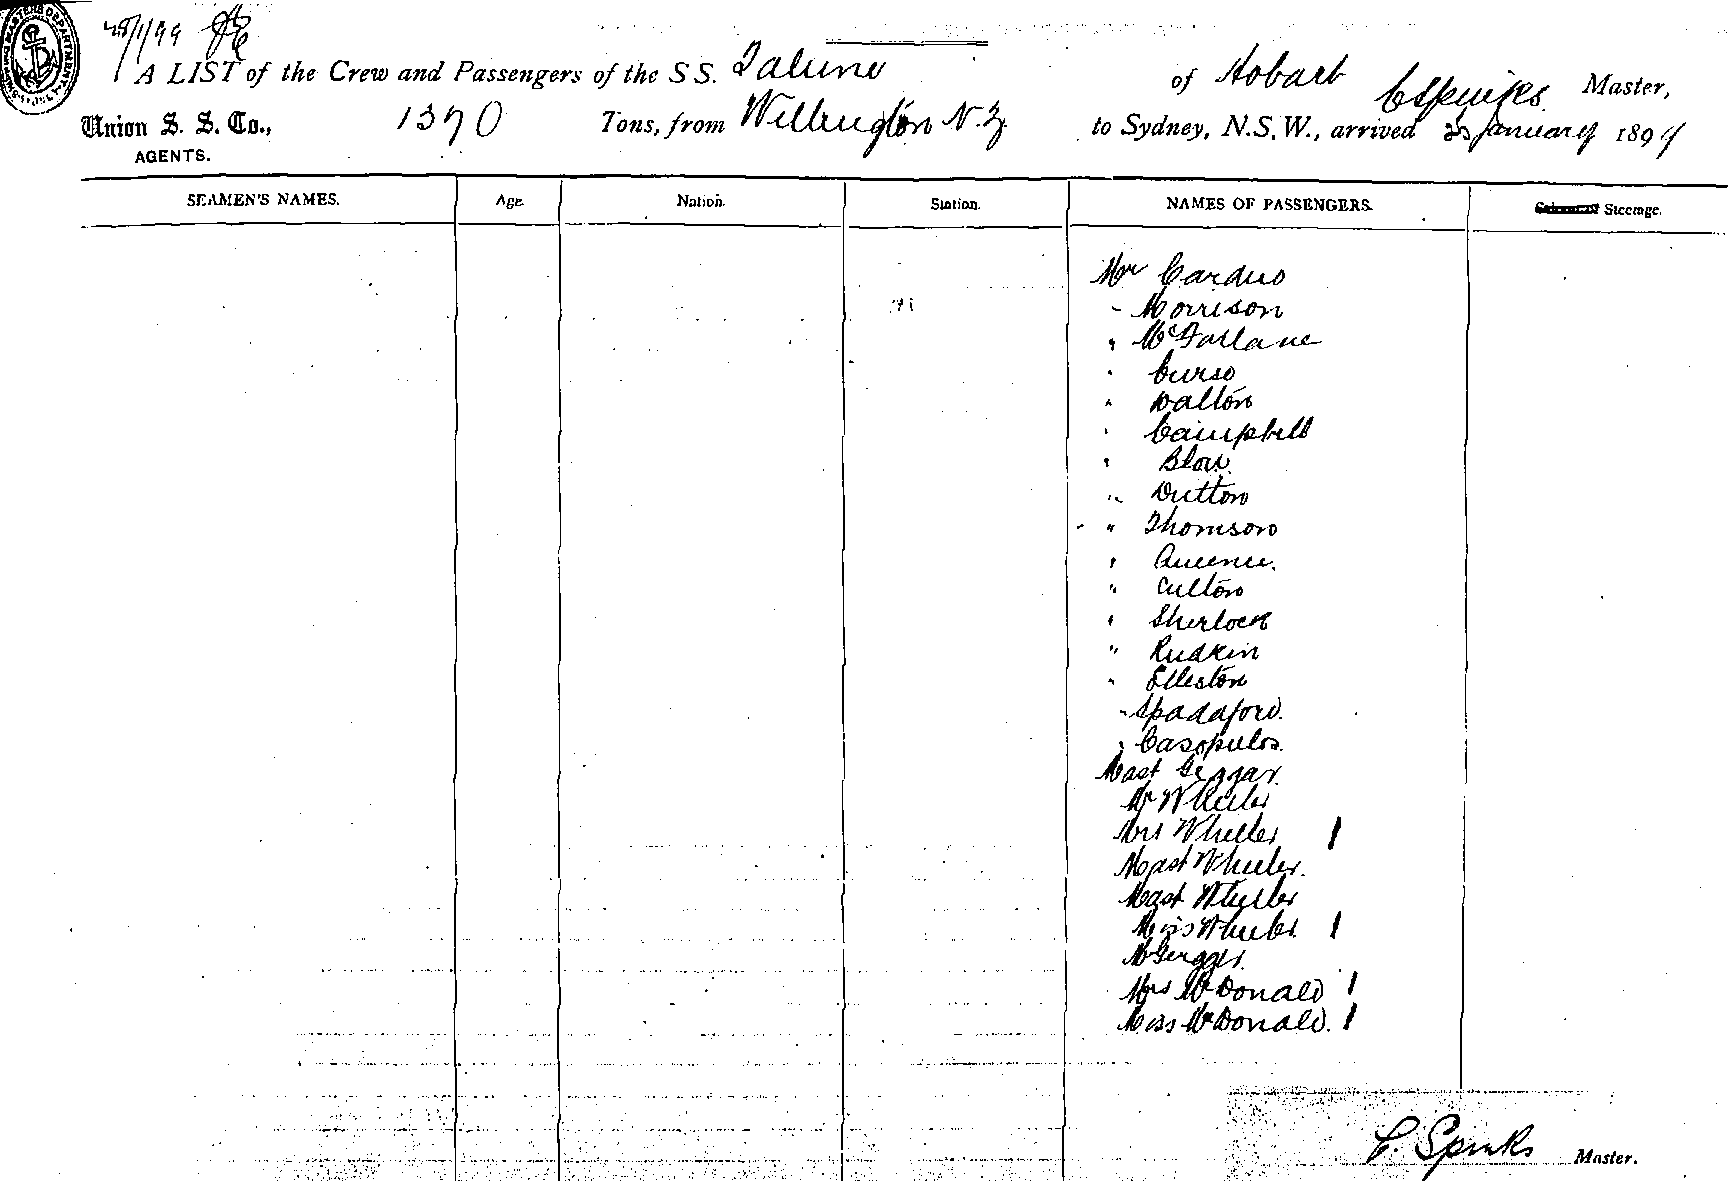 25/1/99
A LIST of the Crew and Passengers of the S S. Talune of Hobart C Spinks Master,
Union S. S. Co., 1370 Tons, from Wellington N.Z. to Sydney, N.S.W., arrived January 189
AGENTS.
SEAMEN'S NAMES. Age. Nation. Station. NAMES OF PASSENGERS. Steerage.
Mr Carduo
- Morrison
" McFarlane
" Curso
" Dalton
" Campbell
" Blow
" Dutton
" Thomson
" Culton
" Sherlock
" Rudkin
" Elleston
" Spadaford.
" Casopulos.
Mast Geggar.
Mr Wheeler
Mrs Wheeler 1
Mast Wheeler.
Mast Wheeler
Miss Wheeler 1
Mrs McDonald 1
Miss McDonald. 1
C. Spinks Master.